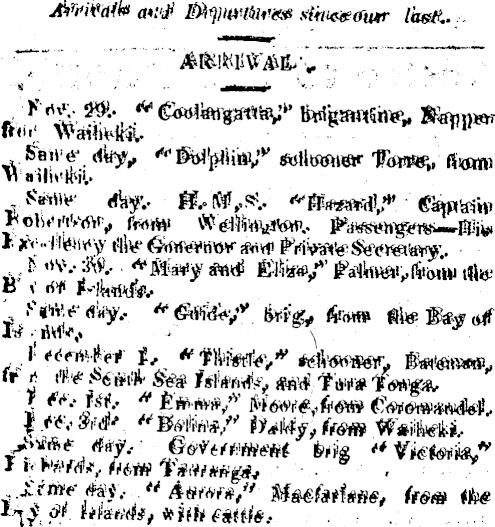 Arrivals and Departures since our last.
ARRIVAL.
Nov. 29. "Coolangatta," brigantine, Napper
from Waiheki.
Same day, "Dolphin," schooner Torre, from
Waiheki.
Same day. H.M.S. "Hazard," Captain
Robertson, from Wellington. Passengers—His
Excellency the Governor and Private Secretary.
Nov. 30. "Mary and Eliza," Palmer, from the
Bay of Islands.
Same day. "Guide," brig, from the Bay of
Islands.
December 1. "Thistle," schooner, Bateman,
from the South Sea Islands, and Tura Tonga.
Dec. 1st. "Emma," Moore, from Coromandel.
Dec. 3rd. "Bolina," Daldy, from Waiheki.
Same day. Government brig "Victoria,"
Richards, from Tauranga.
Same day. "Aurora," Macfarlane, from the
Bay of Islands, with cattle.